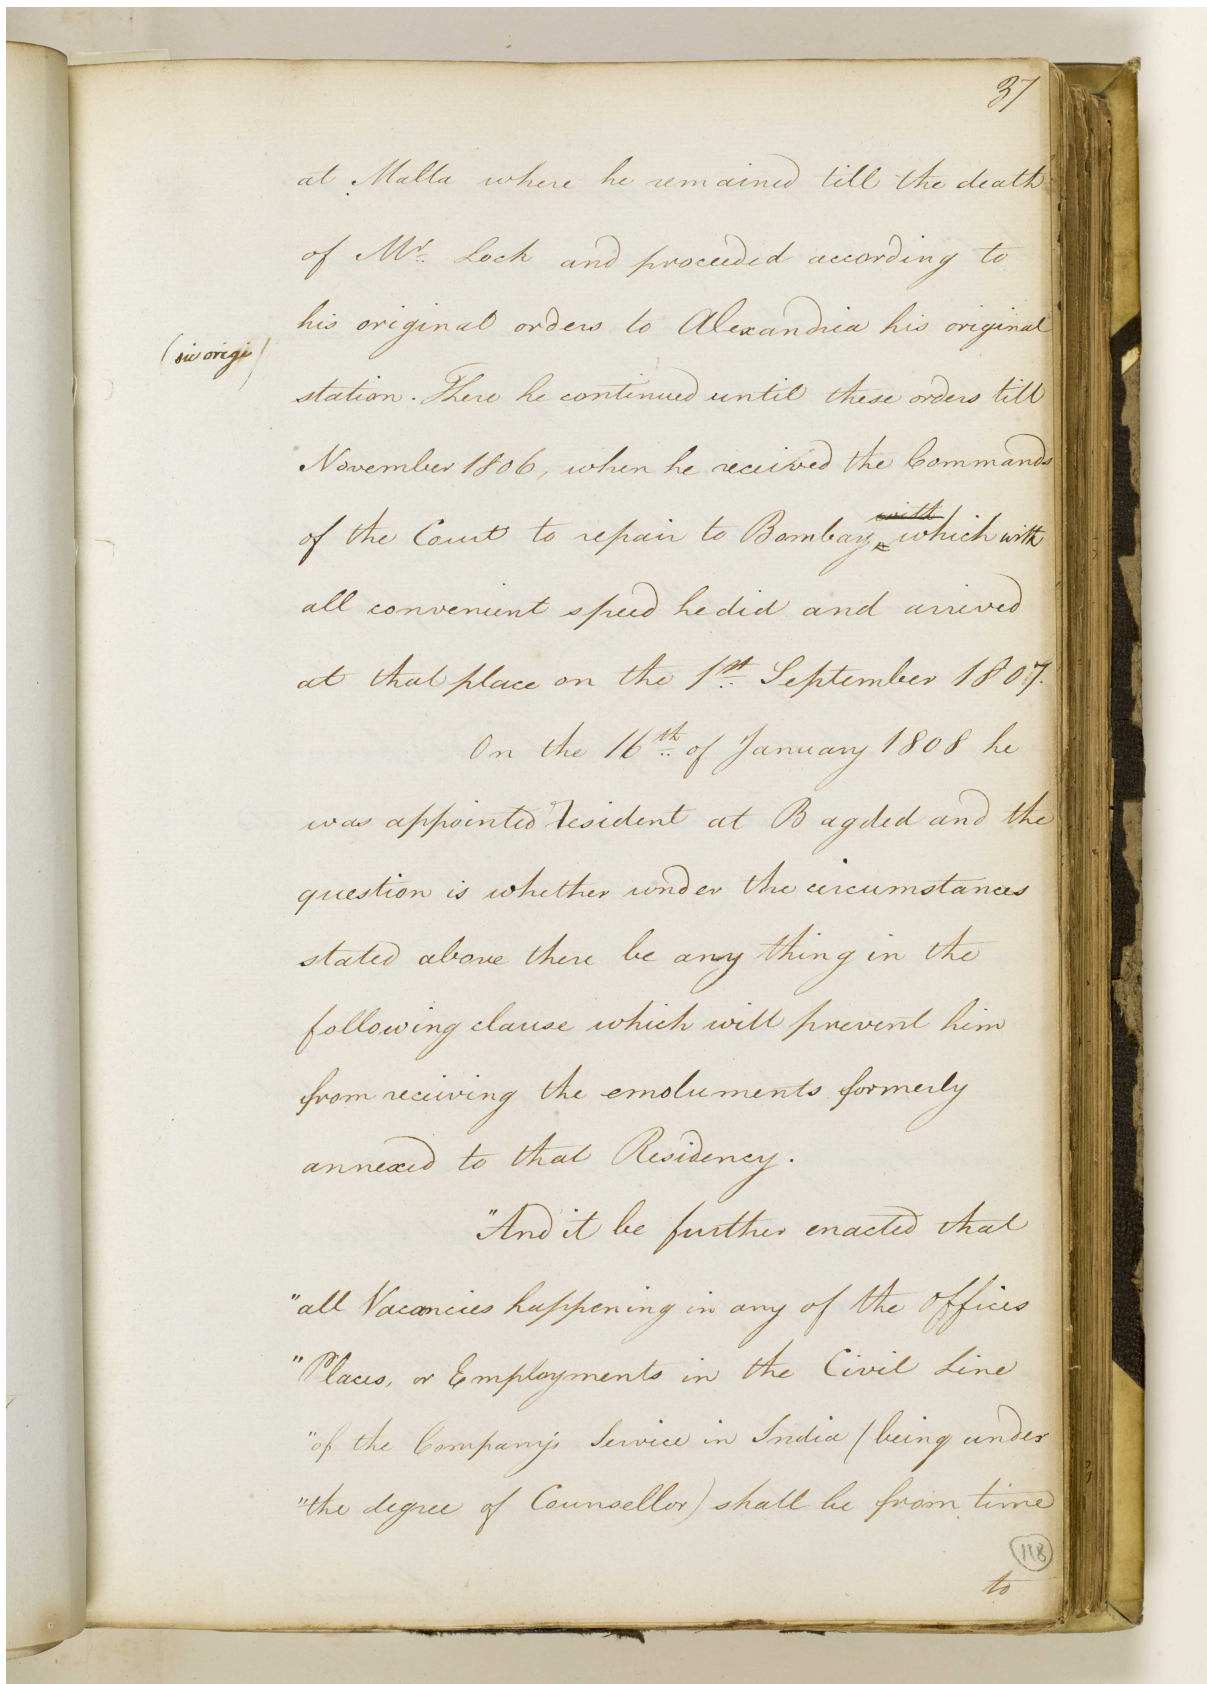 37
at Malta where he remained till the death
of Mr. Lock and proceeded according to
his original orders to Alexandria his original
(sic origi)
station. There he continued until these orders till
November 1806, when he received the Commands
with
of the Court to repair to Bombay, which with
all convenient speed he did and arrived
at that place on the 1st September 1807.
On the 16th of January 1808 he
was appointed Resident at Bagded and the
question is whether under the circumstances
stated above there be any thing in the
following clause which will prevent him
from receiving the emoluments formerly
annexed to that Residency.
"And it be further enacted that
"all Vacancies happening in any of the offices
"Places, or Employments in the Civil Line
"of the Company's Service in India (being under
"the degree of Counsellor) shall be from time
118
to